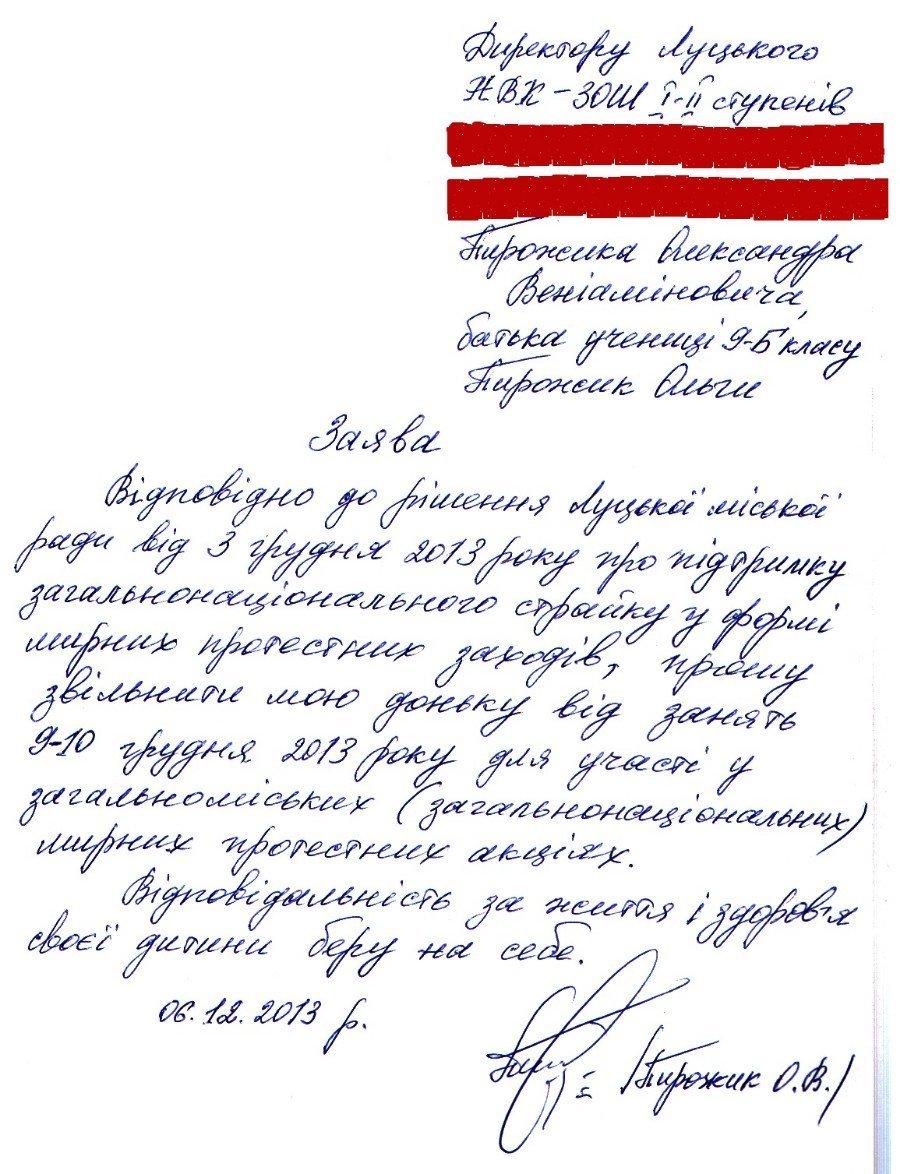 Директору Луцького
НВК-ЗОШ І-ІІ ступенів
Пирожика Олександра
Веніаміновича,
батька учениці 9-Б класу
Пирожик Ольги
Заява
Відповідно до рішення Луцької міської
ради від 3 грудня 2013 року про підтримку
загальнонаціонального страйку у формі
мирних протестних заходів, прошу
звільнити мою доньку від занять
9-10 грудня 2013 року для участі у
загальноміських (загальнонаціональних)
мирних протестних акціях.
Відповідальність за життя і здоров'я
своєї дитини беру на себе.
06.12.2013 р.
/Пирожик О.В./